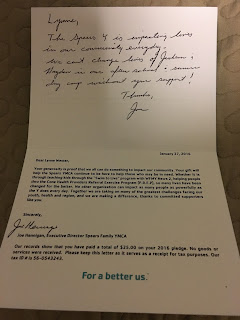 Lynne,
The Speers Y is impacting lives
in our community everyday.
We can't change lives of Jaiden &
Hayden in our after school & summer
day camp without your support!
Thanks,
Joe
January 27, 2016
Dear Lynne Mercer,
Your generosity is proof that we all can do something to impact our community. Your gift will
help the Speers YMCA continue to be here for many in need
through teaching kids through the "Learn to
into the Cone Health Providers Referral Exercise Program (P.R.E.P), so many lives have been
changed for the better. No other organization can impact as many people as powerfully as the
Y does every day. Together we are taking on many of the greatest challenges facing our
youth, health and region, and we are making a difference, thanks to committed supporters
like you.
Sincerely,
Joe Hannigan, Executive Director Spears Family YMCA
Our records show that you have paid a total of $25.00 on your 2016 pledge. No goods or
services were received. Please keep this letter as it serves as a receipt for tax purposes. Our
tax ID# is 56-0543243.
For a better us.